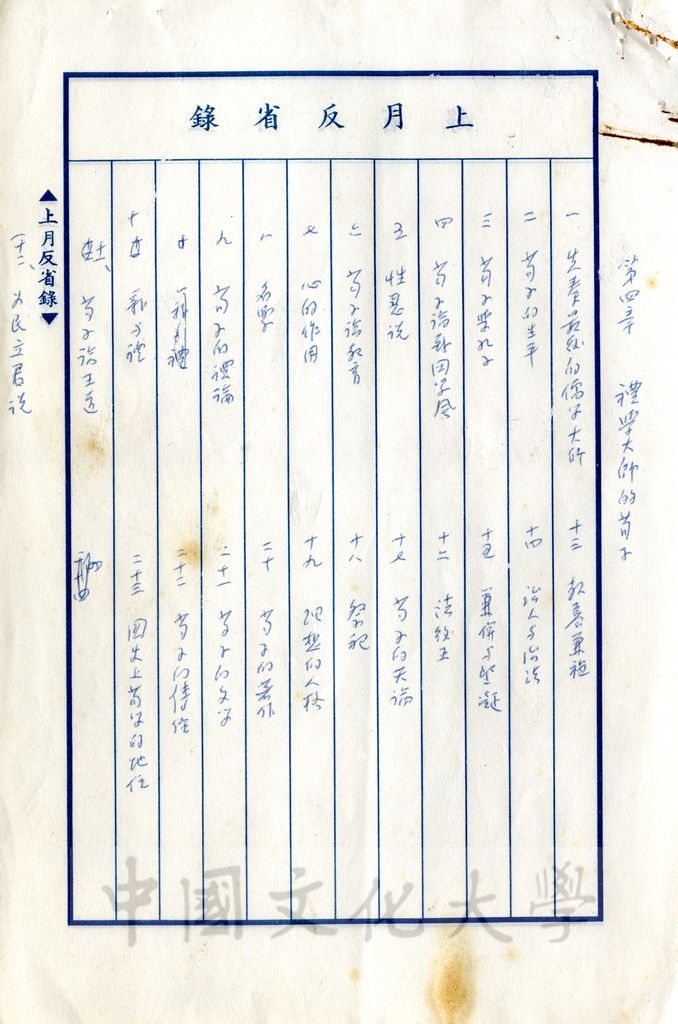 上月反省錄
第四章 禮學大師的荀子
一 先秦最後的儒學大師
二 荀子的生平
三 荀子與孔子
四 荀子論戰國學風
五 性惡說
六 荀子論教育
七 心的作用
八 名學
九 荀子的禮論
十
十 郭子禮
荀子論王道
十二、 為民立君說
十三 教養兼施
十四 治人與治法
十五 兼併與堅凝
十六 法後王
十七 荀子的天論
十八 祭祀
十九 理想的人格
二十 荀子的著作
二十一 荀子的文學
二十二 荀子的傳經
二十三 國史上荀學的地位
▲上月反省錄▼
中國文化大學